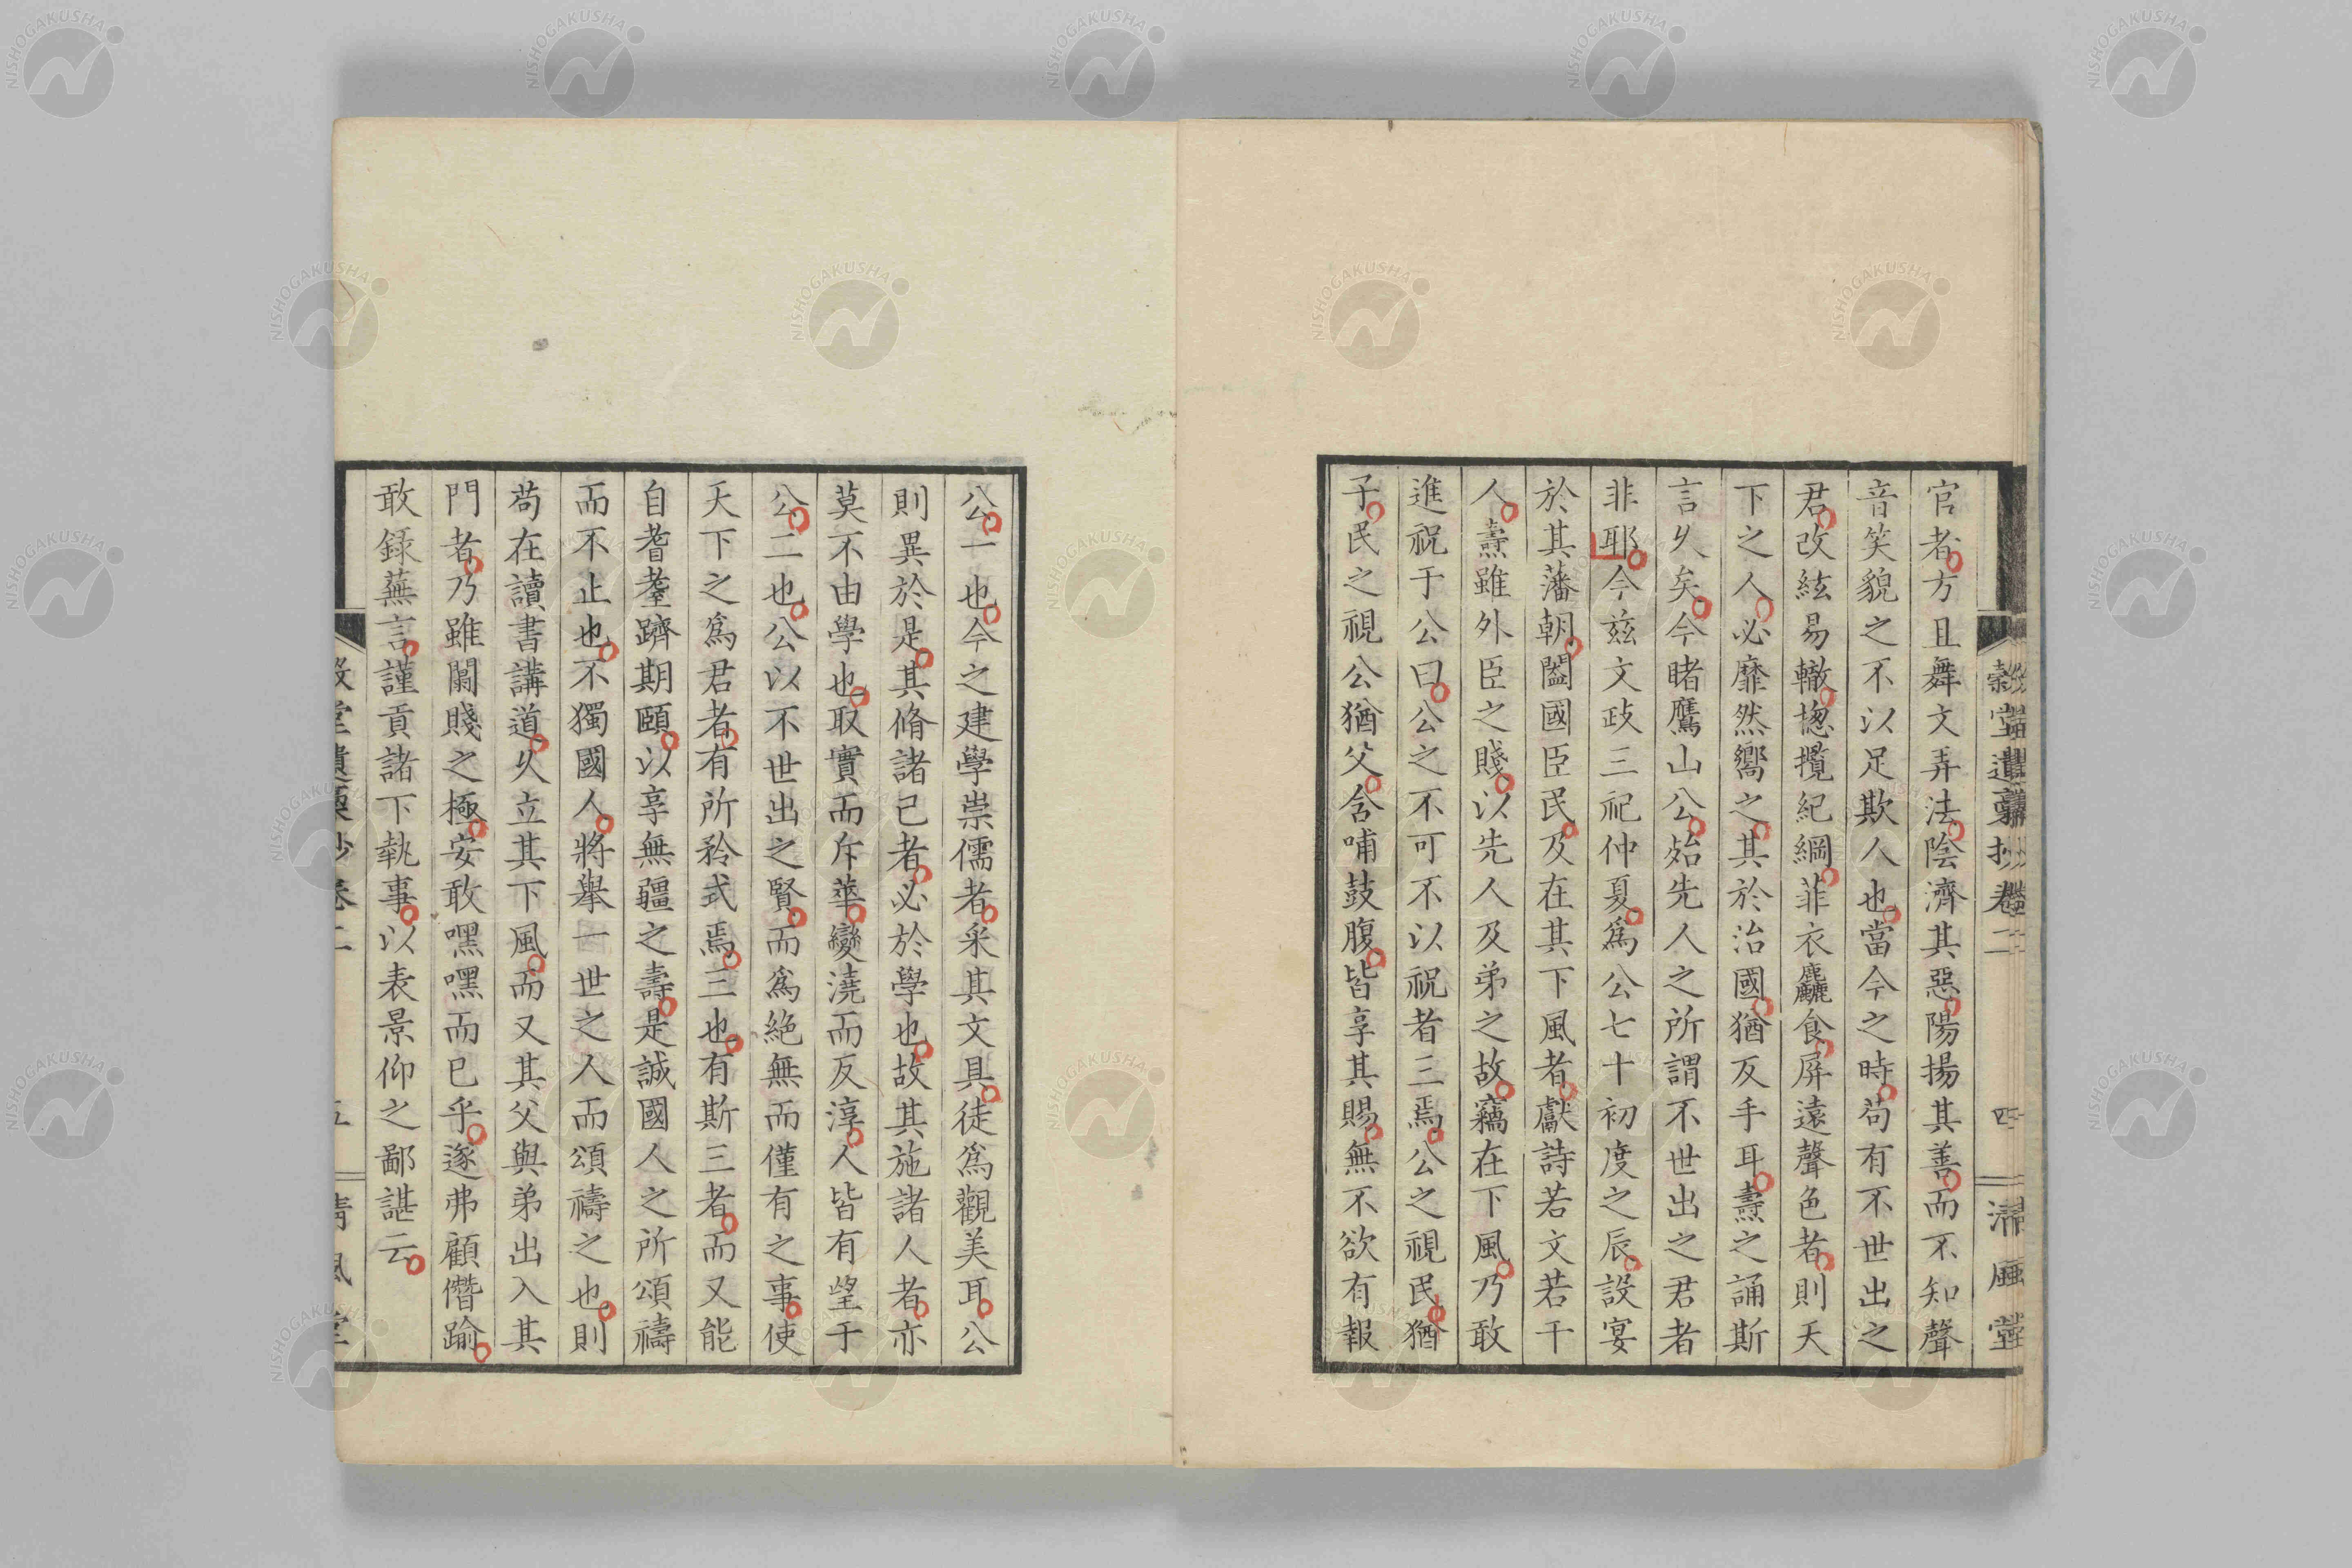 官者方且舞文弄法陰濟其惡陽揚其善而不知聲
音笑貌之不以足欺人也當今之時苟有不世出之
君改絃易轍揔攬紀綱菲衣麤食屏遠聲色者則天
下之人必靡然嚮之其於治國猶反手耳壽之誦斯
言久矣今睹鷹山公始先人之所謂不世出之君者
非耶今玆文政三祀仲夏爲公七十初度之辰設宴
於其藩朝闔國臣民及在其下風者獻詩若文若干
人壽雖外臣之賤以先人及弟之故竊在下風乃敢
進祝于公曰公之不可不以祝者三焉公之視民猶
子民之視公猶父含哺鼓腹皆享其賜無不欲有報
公一也今之建學祟儒者采其文具徒爲觀美耳公
則異於是其脩諸己者必於學也故其施諸人者亦
莫不由學也取實而斥華變澆而反淳人皆有望于
公二也公以不世出之賢而爲絶無而僅有之事使
天下之爲君者有所矜式焉三也有斯三者而又能
自耆耋躋期頤以享無疆之壽是誠國人之所頌禱
而不止也不獨國人將舉一世之人而頌禱之也則
苟在讀書講道久立其下風而又其父與弟出入其
門者乃雖闒賤之極安敢嘿嘿而已乎遂弗顧僭踰
敢録蕪言謹貢諸下執事以表景仰之鄙諶云
NISHOGAKUSHA